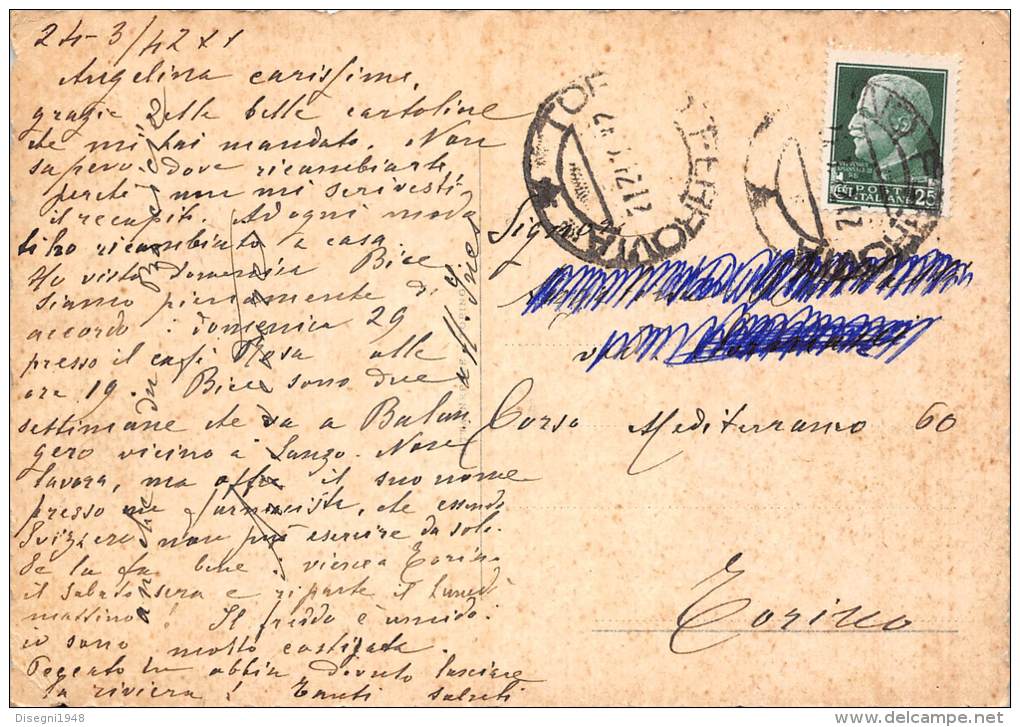 24-3/42 XX
Angelina carissima,
grazie delle belle cartoline
che mi hai mandato. Non
sapevo dove ricambiarti
perchè non mi scrivesti
il recapito. Ad ogni modo
ti ho ricambiato a casa.
Ho visto domenica Bice
siamo pienamente di
accordo: domenica 29
presso il caffè Rosa alle
ore 19. Bice sono due
settimane che da a Balan
gero vicino a Lanzo. Non
lavora, ma offre il suo nome
presso un farmacista, che essendo
svizzero non può esercire da solo.
Se la fa bene: viene a Torino
il sabato sera e riparte il lunedì
mattino! Il freddo è umido.
io sono molto castigata.
Peccato tu abbia dovuto lasciare
la riviera! Tanti saluti
anche
Ines
Sign
via
Corso Mediterraneo 60
Torino
TOR FERROVIA
POSTE
ITALIANE
25
Disegni1948
delcampe.net